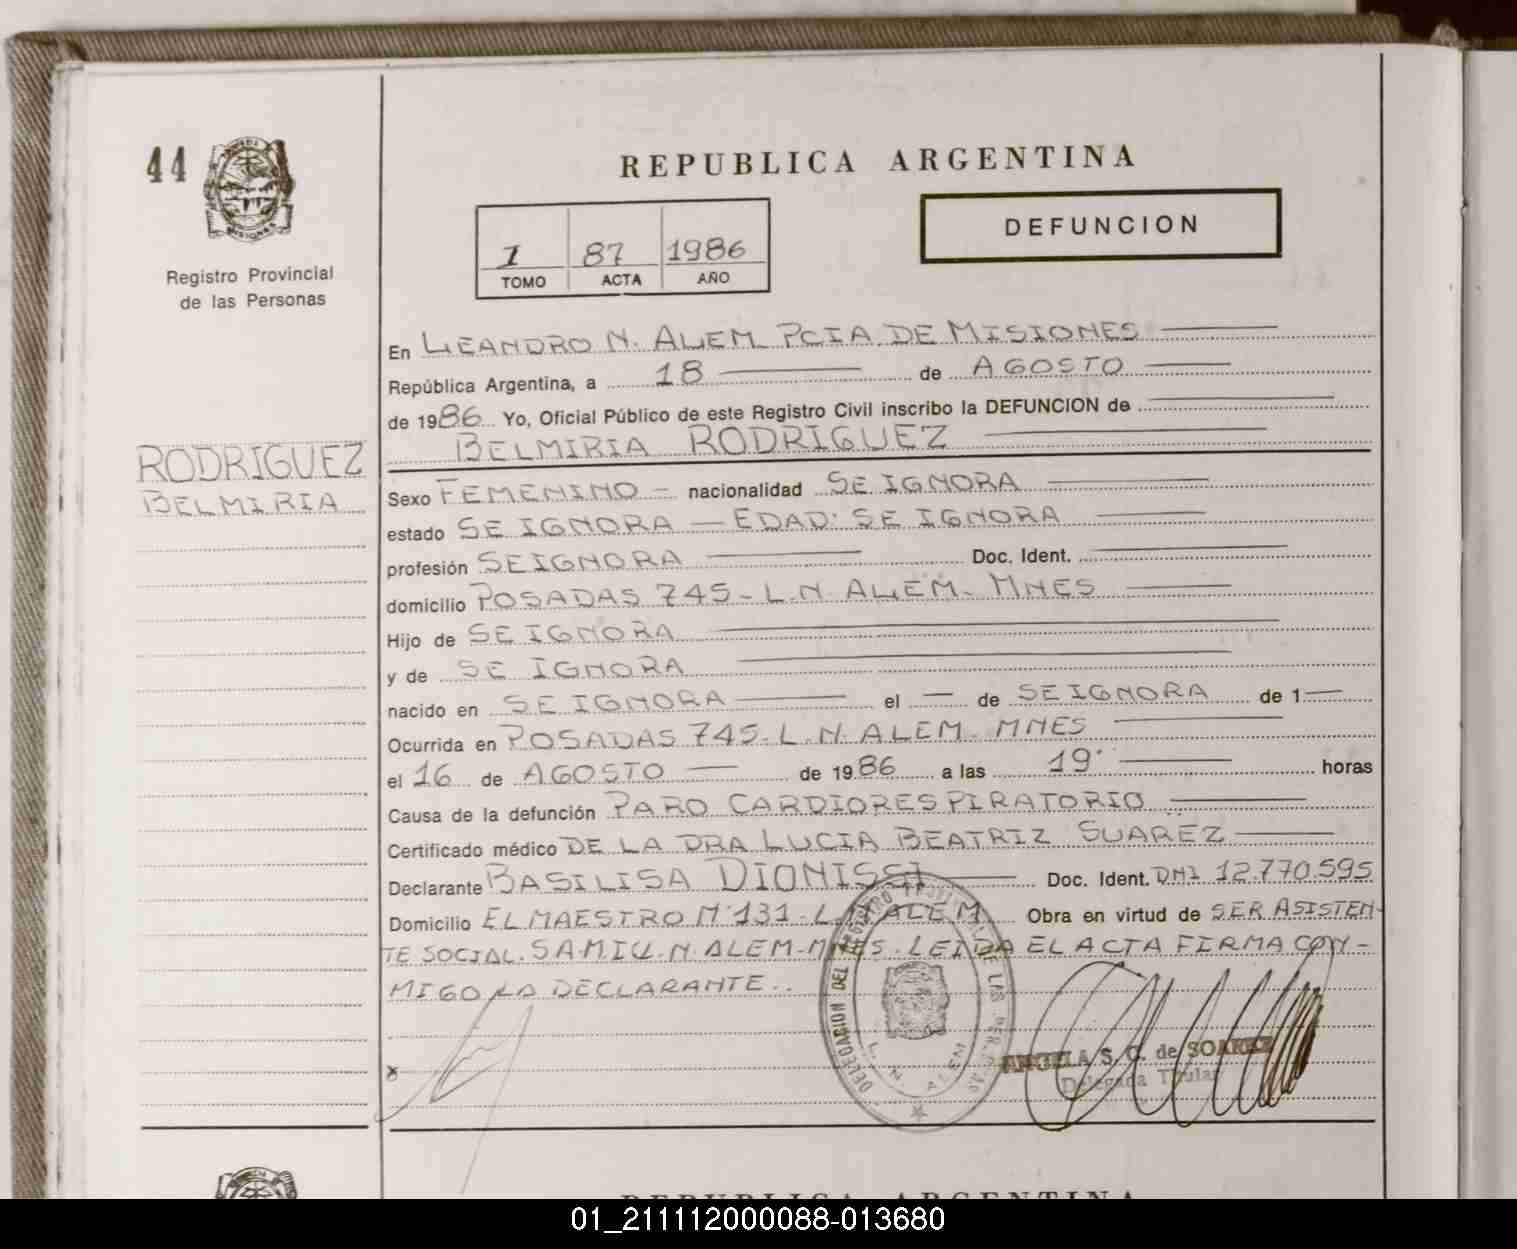 44
MISIONES
Registro Provincial
de las Personas
RODRIGUEZ
BELMIRIA
REPUBLICA ARGENTINA
I 87 1986
TOMO ACTA AÑO
DEFUNCION
En LEANDRO N. ALEM PCIA. DE MISIONES
República Argentina, a 18 de AGOSTO
de 1986 Yo, Oficial Público de este Registro Civil inscribo la DEFUNCION de
BELMIRIA RODRIGUEZ
Sexo FEMENINO - nacionalidad SE IGNORA
estado SE IGNORA - EDAD: SE IGNORA
profesión SE IGNORA Doc. Ident.
domicilio POSADAS 745 - L.N. ALEM - MNES
Hijo de SE IGNORA
y de SE IGNORA
nacido en SE IGNORA el — de SE IGNORA de 1—
Ocurrida en POSADAS 745 - L.N. ALEM - MNES
el 16 de AGOSTO de 1986 a las 19 horas
Causa de la defunción PARO CARDIORESPIRATORIO
Certificado médico DE LA DRA LUCIA BEATRIZ SUAREZ
Declarante BASILISA DIONISSI Doc. Ident. DNI 12.770.595
Domicilio EL MAESTRO Nº 131 - L.N. ALEM Obra en virtud de SER ASISTEN-
TE SOCIAL. SAMIC L.N. ALEM-MNES. LEIDA EL ACTA FIRMA CON-
MIGO LA DECLARANTE..
DELEGACION DEL REGISTRO PROVINCIAL DE LAS PERSONAS
L. N. ALEM
ANGELA S. C. de SOAREZ
Delegada Titular
REPUBLICA ARGENTINA
01_211112000088-013680